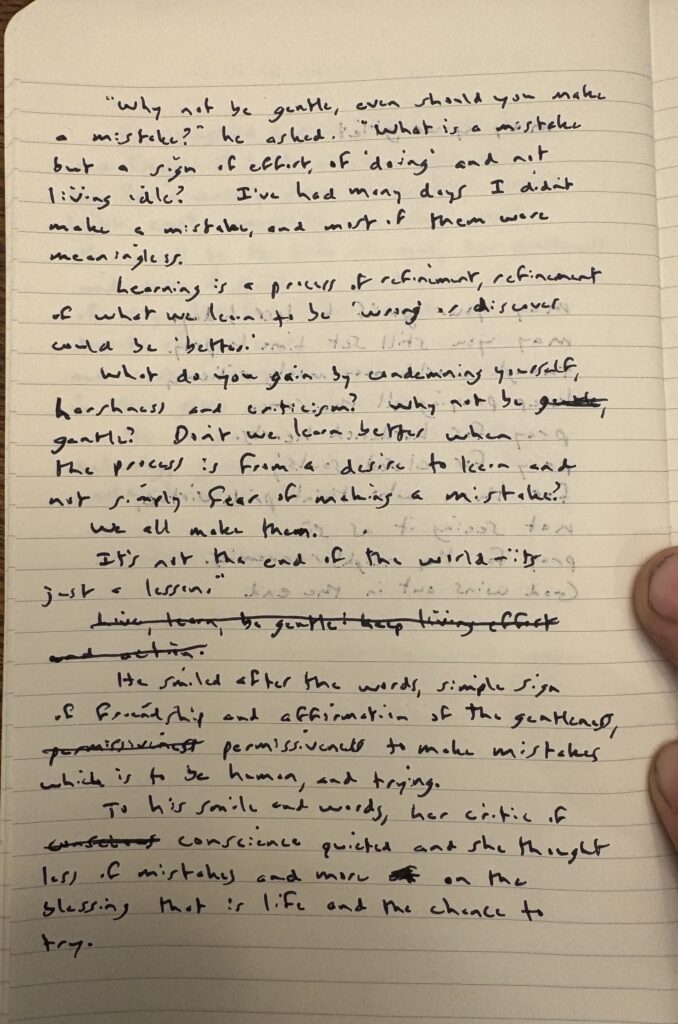 "Why not be gentle, even should you make
a mistake?" he asked. "What is a mistake
but a sign of effort, of 'doing' and not
living idle? I've had many days I didn't
make a mistake, and most of them were
meaningless.
Learning is a process of refinement, refinement
of what we learn to be 'wrong' or discover
could be 'better.'
What do you gain by condemning yourself,
harshness and criticism? Why not be gentle,
gentle? Don't we learn better when
the process is from a desire to learn and
not simply fear of making a mistake?
We all make them.
It's not the end of the world – its
just a lesson."
Live, learn, be gentle! keep living effort
and action.
He smiled after the words, simple sign
of friendship and affirmation of the gentleness,
permissiveness permissiveness to make mistakes
which is to be human, and trying.
To his smile and words, her critic of
conscious conscience quieted and she thought
less of mistakes and more on the
blessing that is life and the chance to
try.